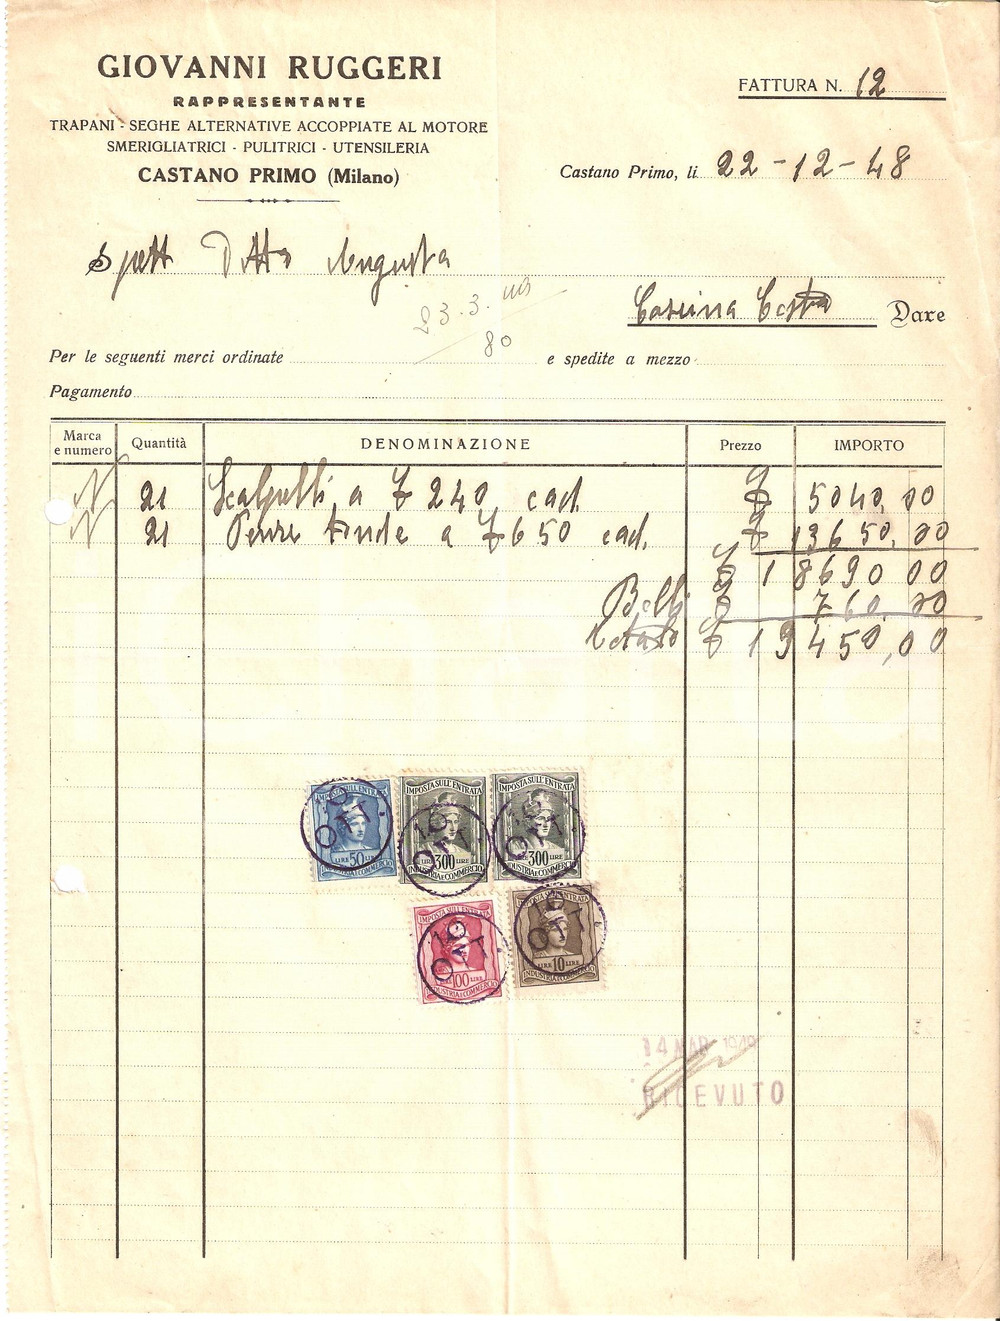 GIOVANNI RUGGERI
RAPPRESENTANTE
TRAPANI - SEGHE ALTERNATIVE ACCOPPIATE AL MOTORE
SMERIGLIATRICI - PULITRICI - UTENSILERIA
CASTANO PRIMO (Milano)
FATTURA N. 12
Castano Primo, li 22-12-48
Spett Ditta Augusta
23.3.
80
Cascina Costa Dare
Per le seguenti merci ordinate e spedite a mezzo
Pagamento
Marca e numero Quantità DENOMINAZIONE Prezzo IMPORTO
N 21 Scalpelli a £ 240 cad. £ 5040,00
N 21 tonde a £ 650 cad. £ 13650,00
£ 18690 00
Bolli £ 760,00
Totale £ 19450,00
IMPOSTA SULL'ENTRATA IMPOSTA SULL'ENTRATA IMPOSTA SULL'ENTRATA
10 OTT. 10 OTT. 10 OTT.
LIRE 50 LIRE LIRE 300 LIRE LIRE 300 LIRE
INDUSTRIA E COMMERCIO INDUSTRIA E COMMERCIO INDUSTRIA E COMMERCIO
IMPOSTA SULL'ENTRATA IMPOSTA SULL'ENTRATA
10 OTT. 10 OTT.
LIRE 100 LIRE LIRE 10 LIRE
INDUSTRIA E COMMERCIO INDUSTRIA E COMMERCIO
14 MAR 1949
RICEVUTO